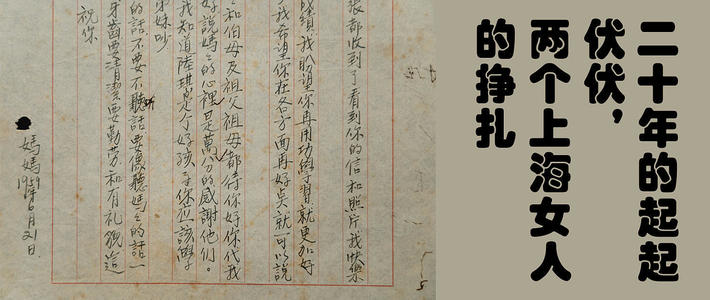 二十年的起起
伏伏，
两个上海女人
的挣扎
張都收到了看到你的信和照片我快樂
成績我盼望你再用功練習就更加好
我希望你在各方面再好点就可以說
和伯母及祖父祖母都待你好你代我
好說媽々的心裡是萬分的感謝他們。
我知道陸琪是个好孩子你应該
妹吵
的話不要不聽話要像聽媽々的話一
牙齒要清潔要勤劳和有礼貌這
祝你
媽媽
1959年6月21日.